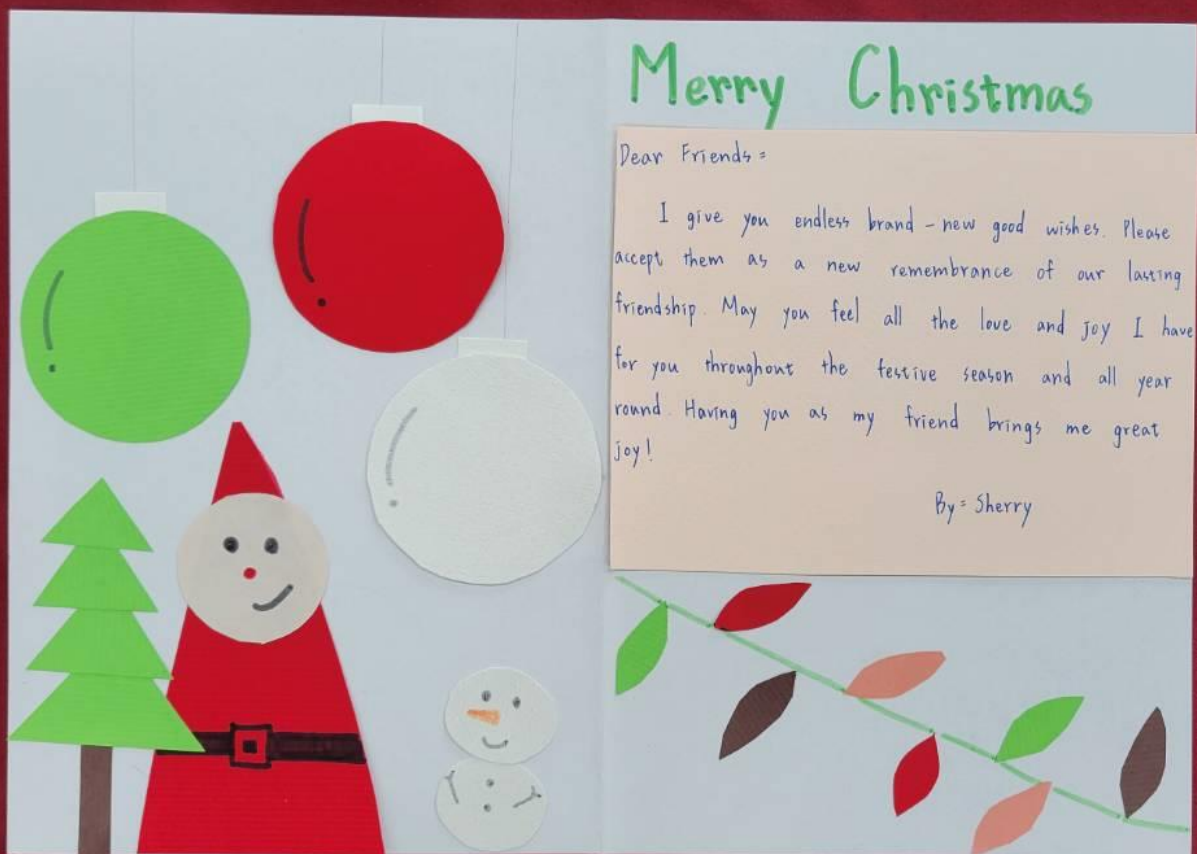 Merry Christmas
Dear Friends:
I give you endless brand-new good wishes. Please
accept them as a new remembrance of our lasting
friendship. May you feel all the love and joy I have
for you throughout the festive season and all year
round. Having you as my friend brings me great
joy!
By: Sherry